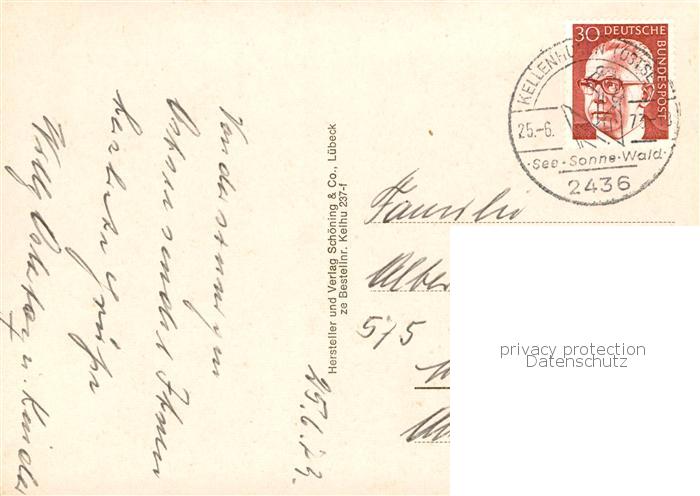 Von der sonnigen
Ostsee sendet Ihnen
herzliche Grüße
Willy u. Kinder
25.6.73.
Hersteller und Verlag Schöning & Co., Lübeck
ze Bestellnr. Kelhu 237-f
30 DEUTSCHE BUNDESPOST
KELLENHUSEN (OSTSEE)
25.-6. 73
·See·Sonne·Wald·
2436
Familie
Alber
575
privacy protection
Datenschutz